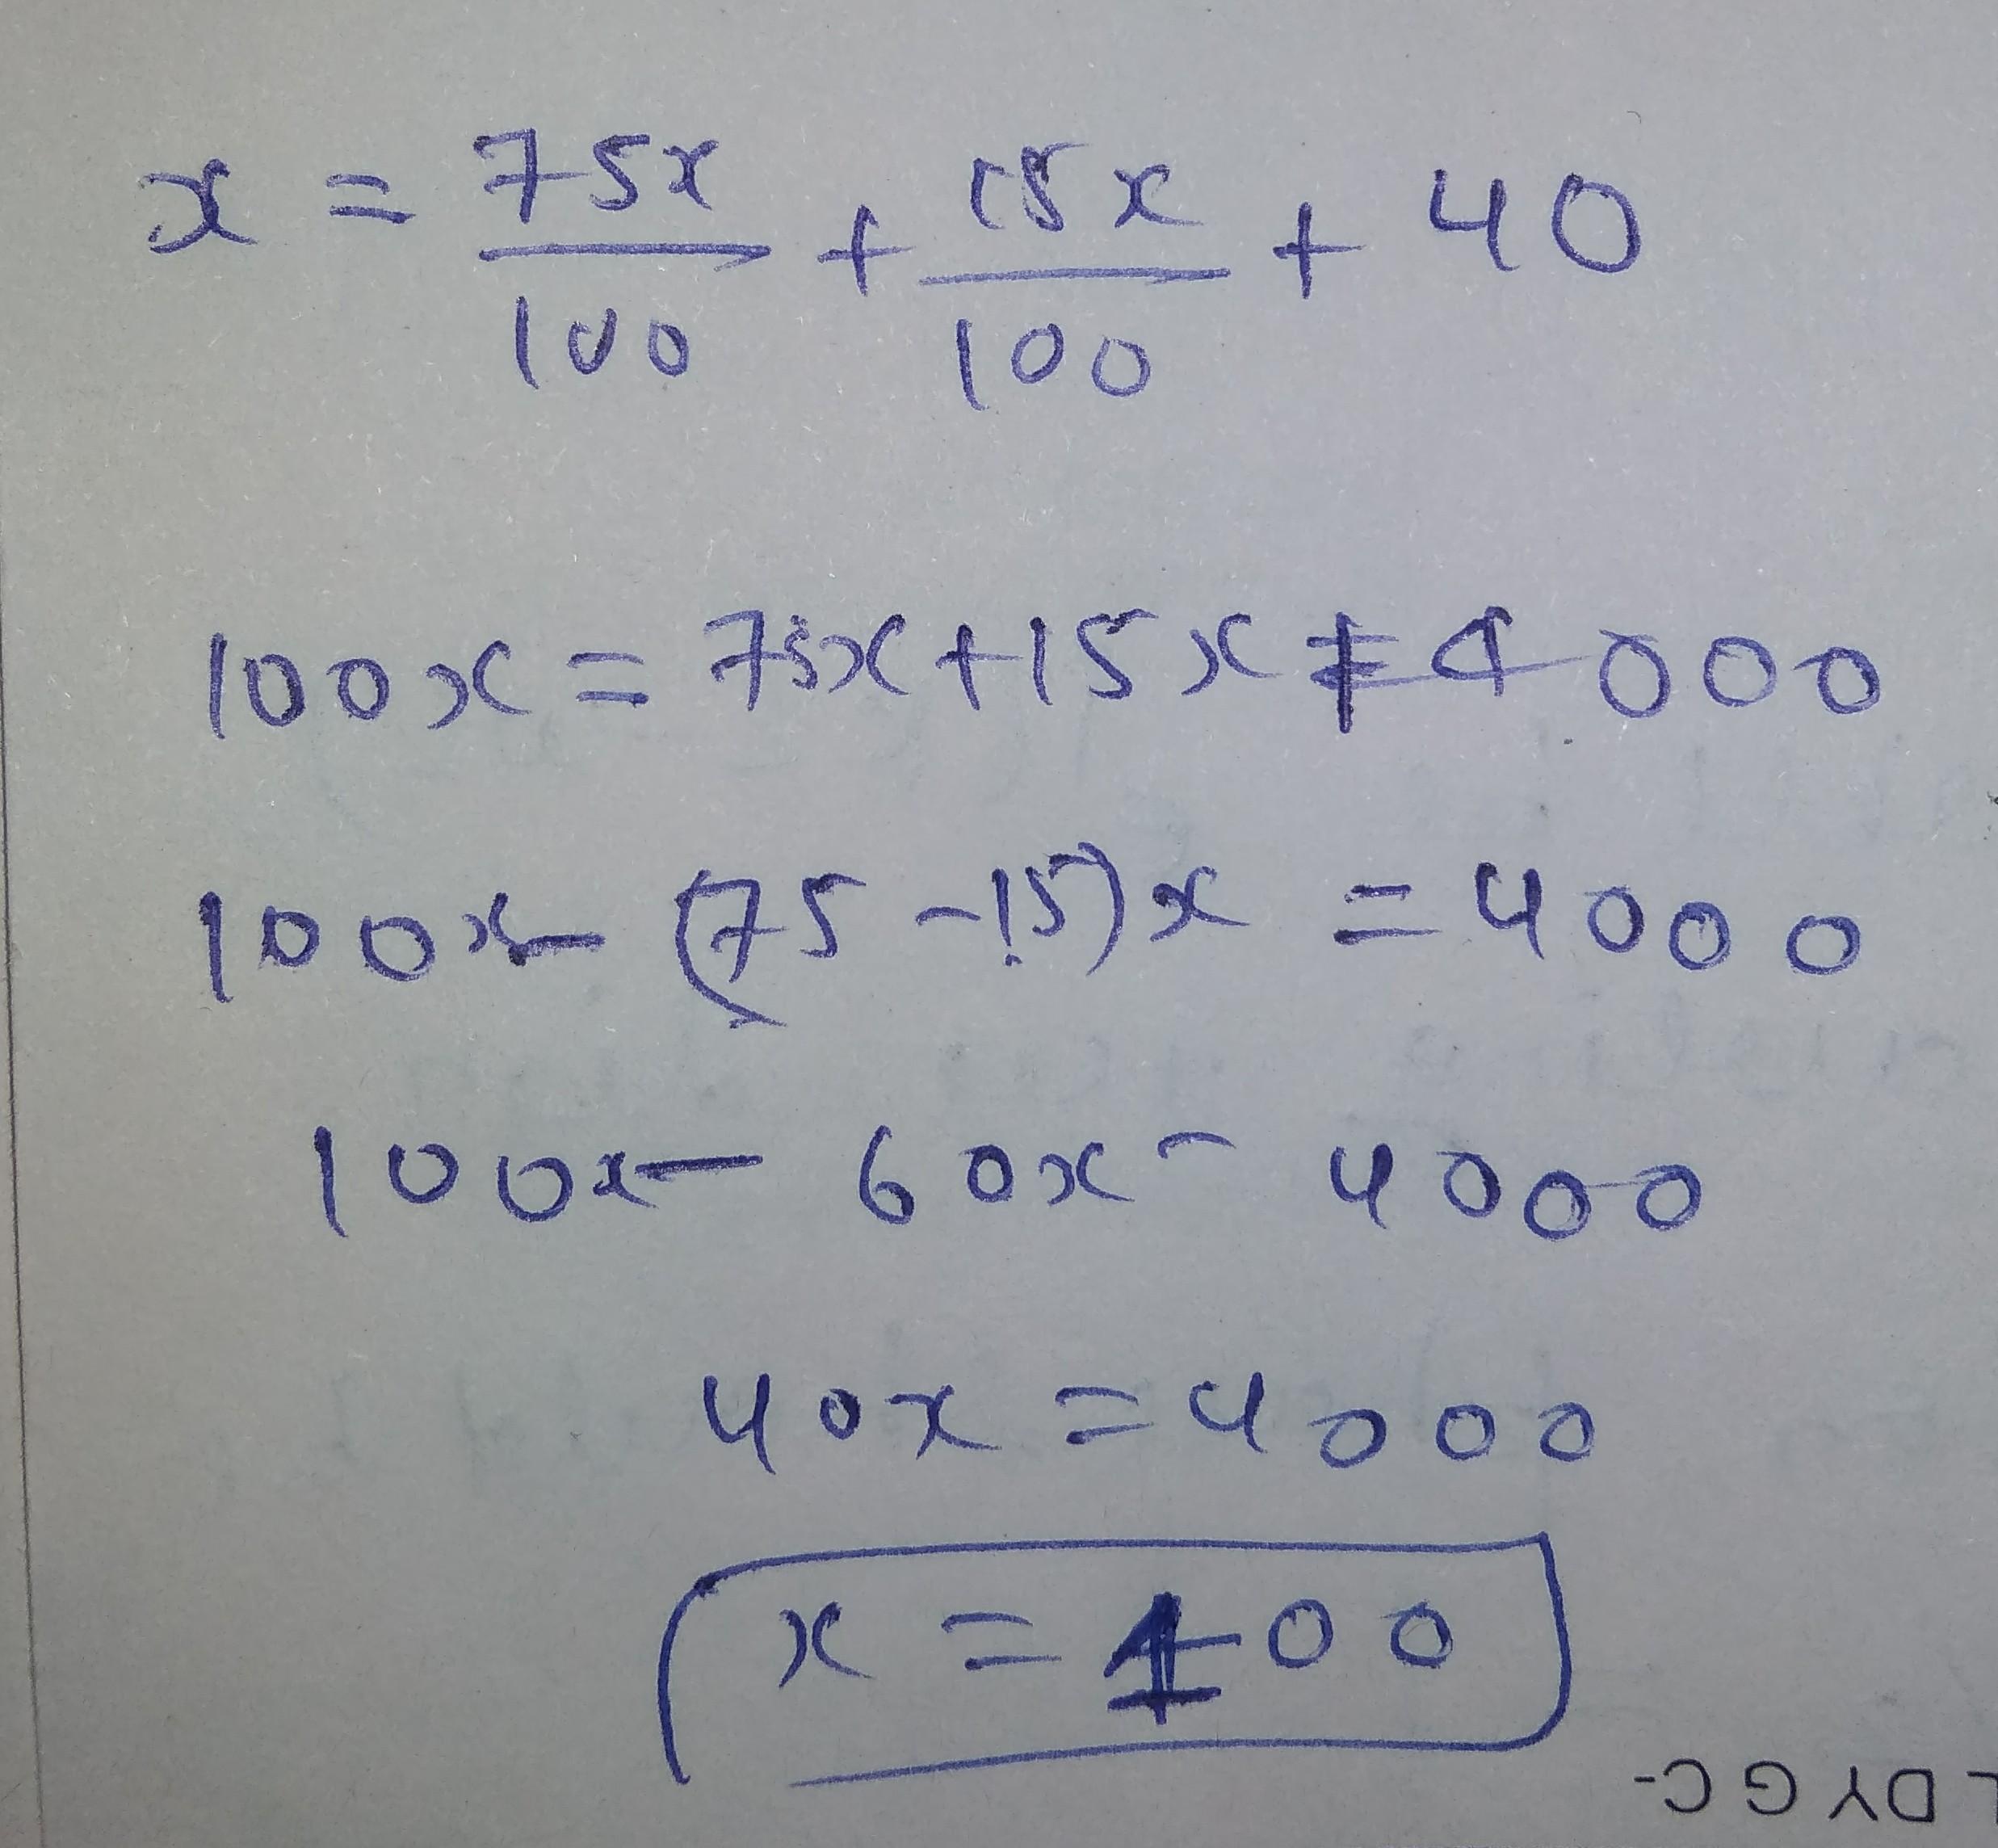 x = 75x/100 + 15x/100 + 40
100x = 75x + 15x + 4000
100x - (75 - 15)x = 4000
100x - 60x - 4000
40x = 4000
x = 100
LDYGC-